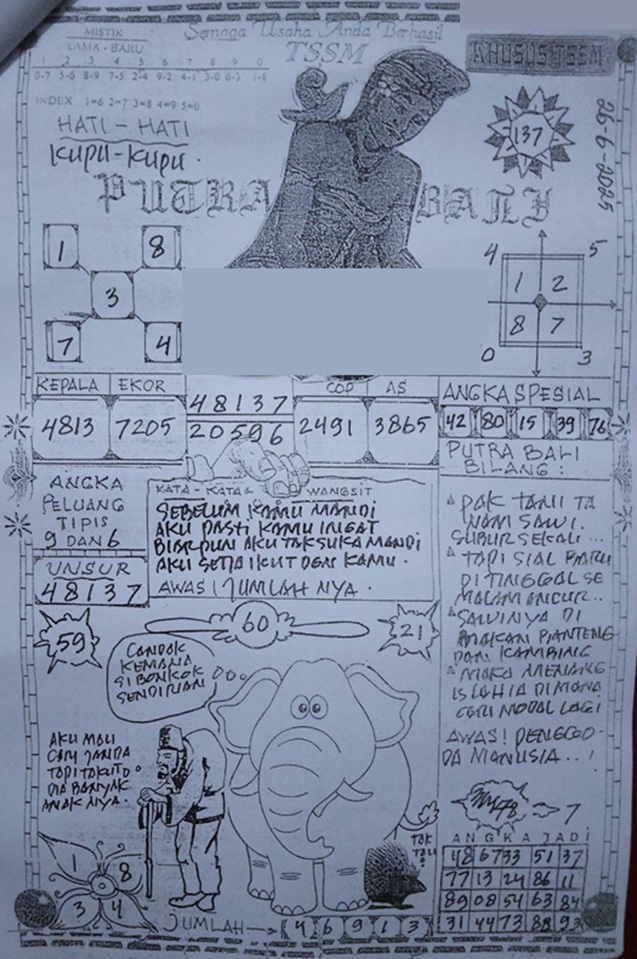 MISTIK
LAMA - BARU
1 2 3 4 5 6 7 8 9 0
0-7 5-6 8-9 7-5 2-4 9-2 4-1 3-0 6-3 1-8
INDEX 1=6 2=7 3=8 4=9 5=0
HATI - HATI
KUPU-KUPU.
Semoga Usaha Anda Berhasil
TSSM
KHUSUS TSSM
137
26-6-2025
PUTRA BALI
1 8
3
7 4
4 5
1 2
8 7
0 3
KEPALA EKOR
4813 7205
48137
20596
COP AS
2491 3865
ANGKA SPESIAL
42 80 15 39 76
ANGKA
PELUANG
TIPIS
9 DAN 6
UNSUR
48137
KATA - KATA WANGSIT
SEBELUM KAMU MANDI
AKU PASTI KAMU INGAT
BIARPUN AKU TAK SUKA MANDI
AKU SETIA IKUT DGN KAMU.
AWAS! JUMLAH NYA.
PUTRA BALI
BILANG:
PAK TANI TA
NAM SAWI.
SUBUR SEKALI...
TAPI SIAL BARU
DI TINGGAL SE
MALAM ANCUR..
SAWINYA DI
MAKAN
DAN KAMBING
MAKA MENANG
IS LAH IA DIMANA
CARI MODAL LAGI
AWAS! PENGGO
DA MANUSIA..!
59
60
21
KEMANA
SI BONGKOK
SENDIRIAN
AKU MAU
CARI JANDA
TAPI TAKUT
DIA BANYAK
ANAK NYA.
TAK
TAU
1 8
3 4
JUMLAH
4 6 9 1 3
7
ANGKA JADI
48 67 33 51 37
77 13 24 86 11
89 08 54 63 84
31 44 73 88 93